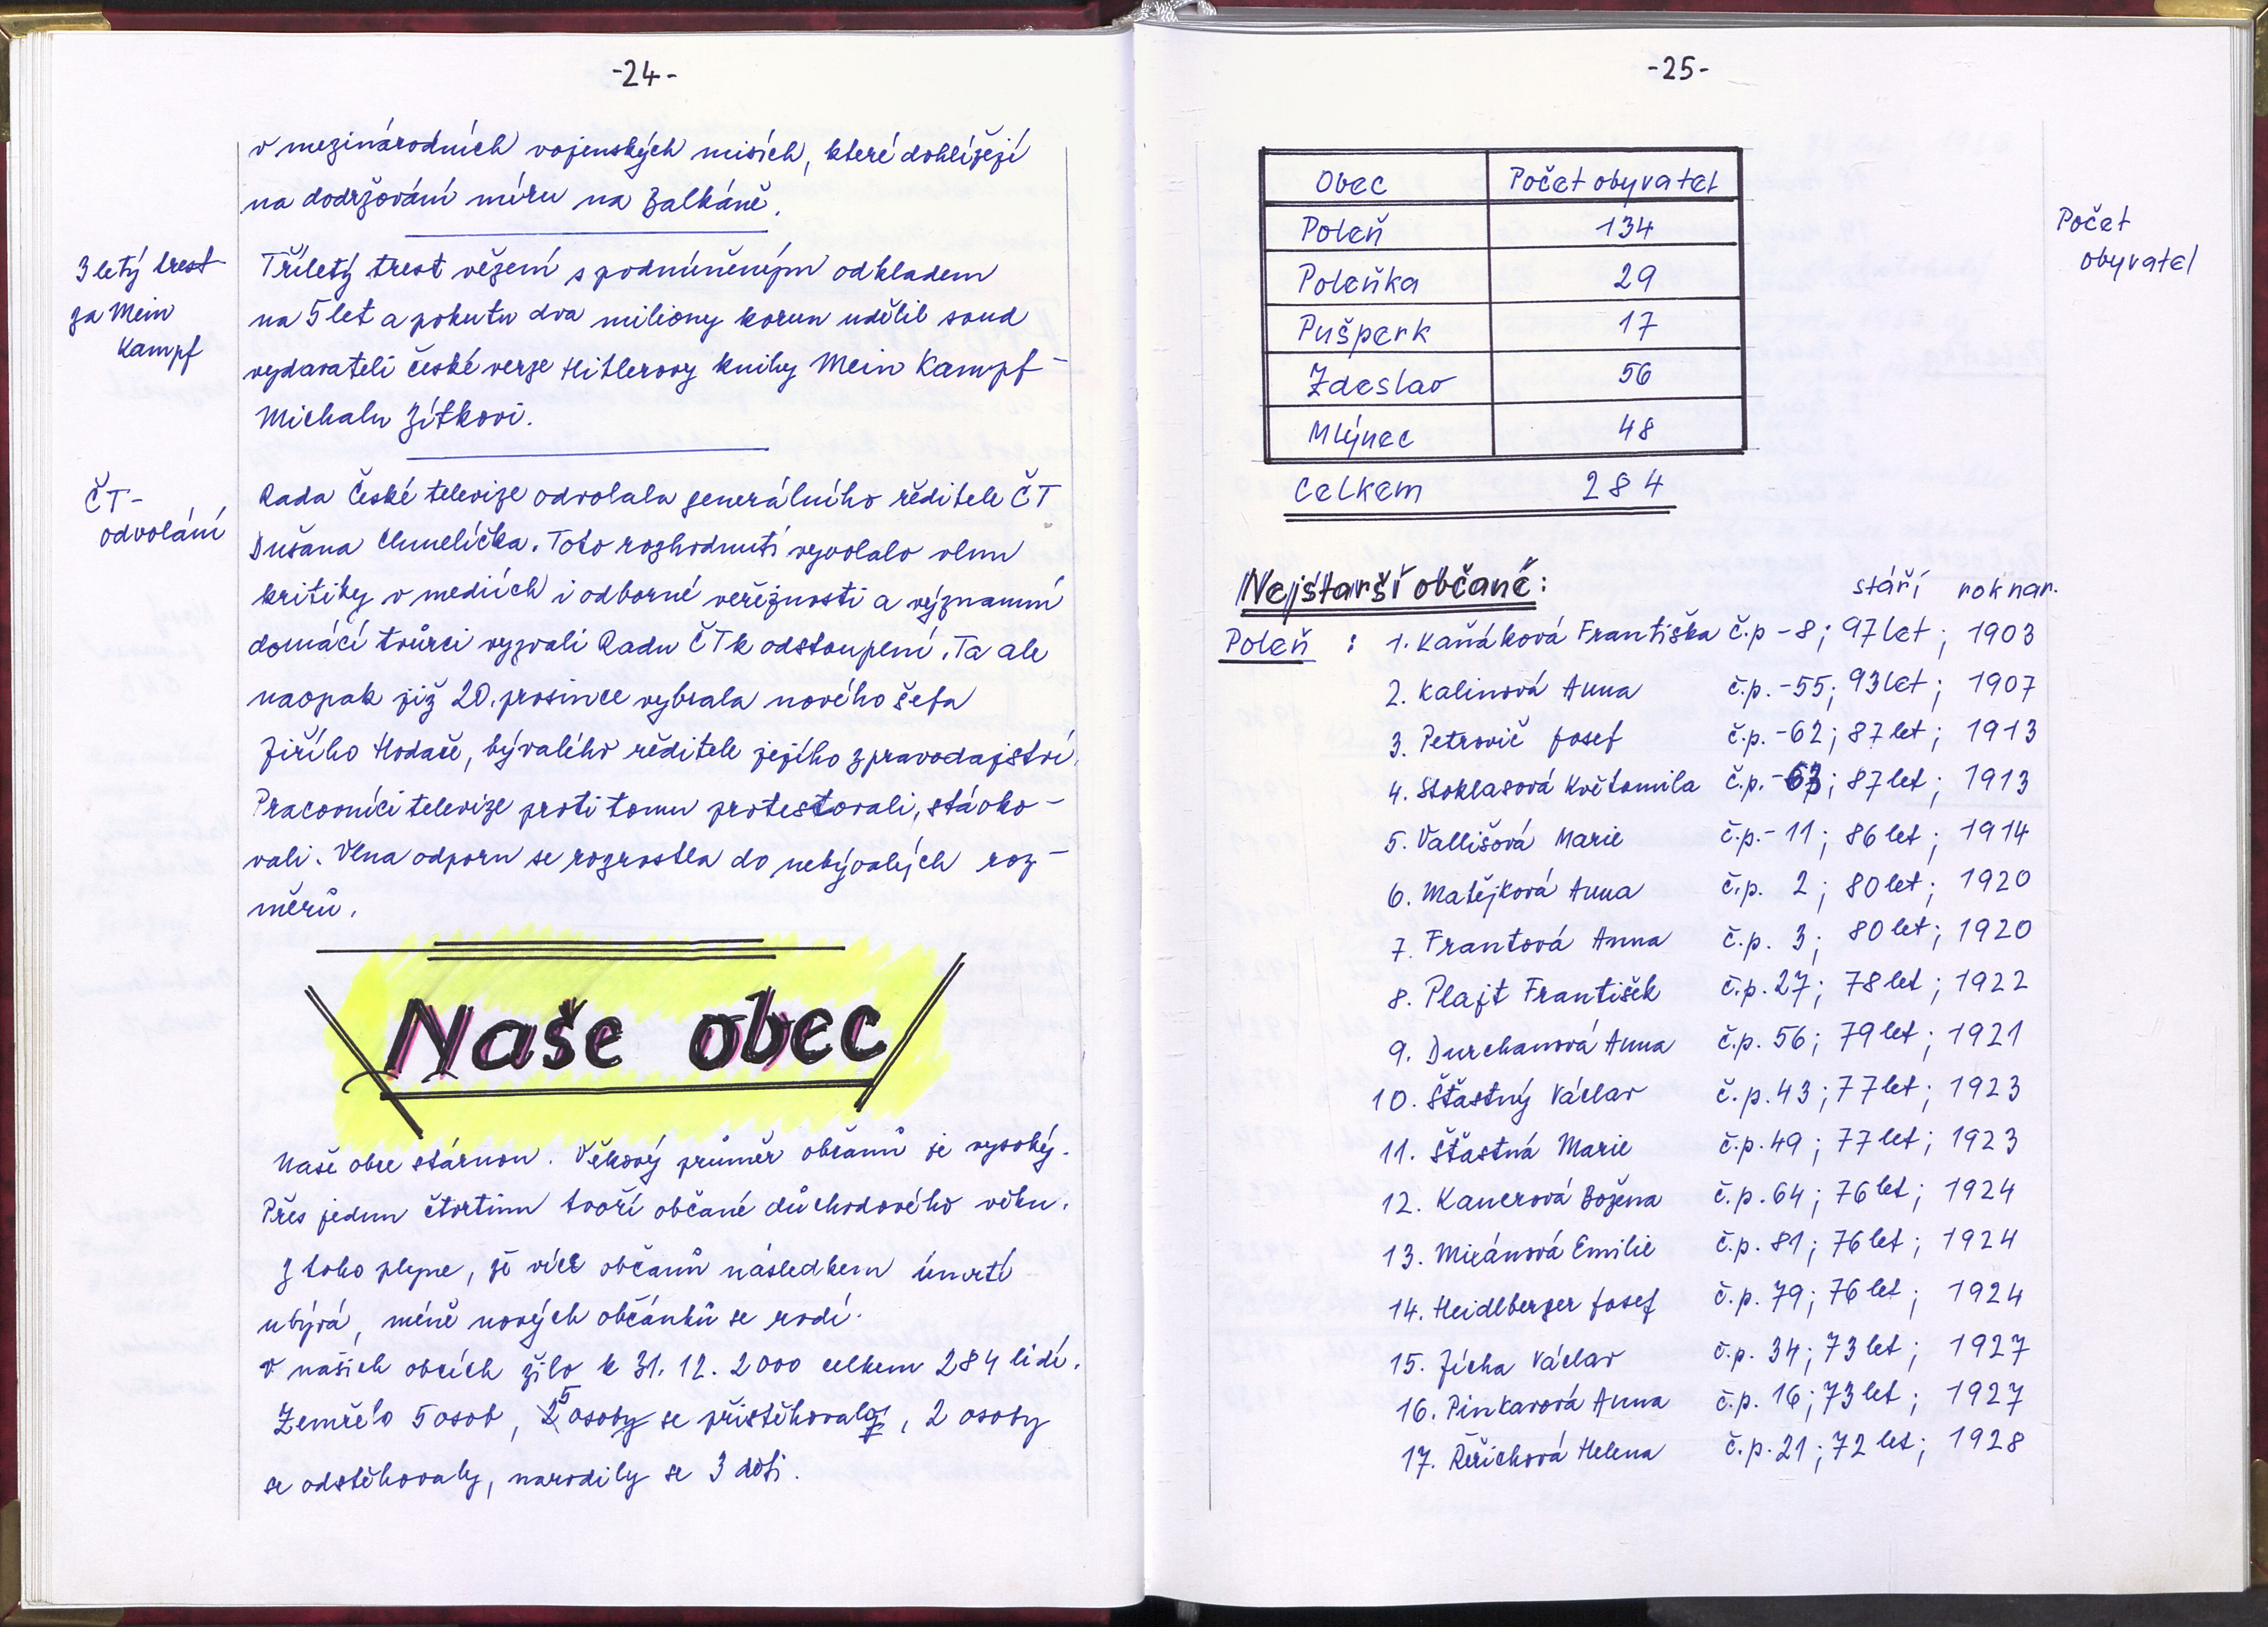 -24-
v mezinárodních vojenských misích, které dohlížejí
na dodržování míru na Balkáně.
3 letý trest
za Mein
Kampf
Tříletý trest vězení s podmíněným odkladem
na 5 let a pokutu dva miliony korun udělil soud
vydavateli české verze Hitlerovy knihy Mein Kampf -
Michalu Zítkovi.
ČT-
odvolání
Rada České televize odvolala generálního ředitele ČT
Dušana Chmelíčka. Toto rozhodnutí vyvolalo vlnu
kritiky v mediích i odborné veřejnosti a významní
domácí tvůrci vyzvali Radu ČT k odstoupení. Ta ale
naopak již 20. prosince vybrala nového šéfa
Jiřího Hodače, bývalého ředitele jejího zpravodajství.
Pracovníci televize proti tomu protestovali, stávko-
vali. Vlna odporu se rozrostla do nebývalých roz-
měrů.
Naše obec
Naše obce stárnou. Věkový průměr občanů je vysoký.
Přes jednu čtvrtinu tvoří občané důchodového věku.
Z toho plyne, že více občanů následkem úmrtí
ubývá, méně nových občánků se rodí.
V našich obcích žilo k 31. 12. 2000 celkem 284 lidí.
Zemřelo 5 osob, 5 osob se přistěhovalo, 2 osoby
se odstěhovaly, narodily se 3 děti.
-25-
Počet
obyvatel
Obec Počet obyvatel
Poleň 134
Poleňka 29
Pušperk 17
Zdeslav 56
Mlýnec 48
Celkem 284
Nejstarší občané: stáří rok nar.
Poleň : 1. Kaňáková Františka č.p - 8; 97 let; 1903
2. Kalinová Anna č.p. - 55; 93 let; 1907
3. Petrovič Josef č.p. - 62; 87 let; 1913
4. Stoklasová Květomila č.p. - 63; 87 let; 1913
5. Vallišová Marie č.p. - 11; 86 let; 1914
6. Matějková Anna č.p. 2; 80 let; 1920
7. Frantová Anna č.p. 3; 80 let; 1920
8. Plajt František č.p. 27; 78 let; 1922
9. Durchanová Anna č.p. 56; 79 let; 1921
10. Šťastný Václav č.p. 43; 77 let; 1923
11. Šťastná Marie č.p. 49; 77 let; 1923
12. Kanerová Božena č.p. 64; 76 let; 1924
13. Mixánová Emilie č.p. 81; 76 let; 1924
14. Heidlberger Josef č.p. 79; 76 let; 1924
15. Jícha Václav č.p. 34; 73 let; 1927
16. Pinkarová Anna č.p. 16; 73 let; 1927
17. Řeřichová Helena č.p. 21; 72 let; 1928